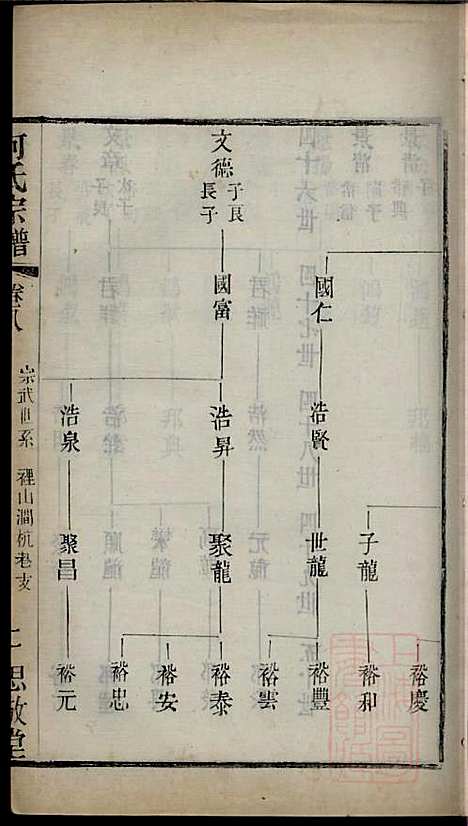 國仁
浩賢
子龍
世龍
裕慶
裕和
裕豐
裕雲
文德
子良
長子
國富
浩昇
浩泉
聚龍
聚昌
裕泰
裕安
裕忠
裕元
何氏宗譜
卷八
崇武世系
裡山澗杭老支
二
思敬堂